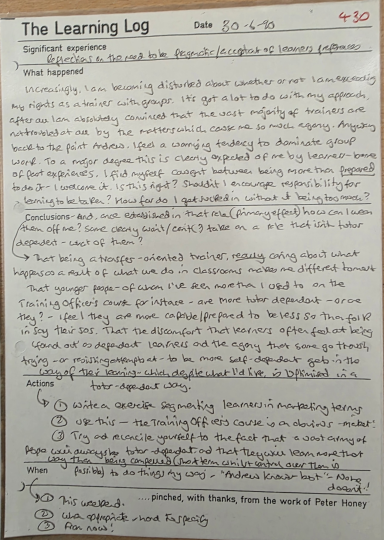 430
The Learning Log Date 30-6-90
Significant experience
Reflections on the need to be pragmatic/acceptant of learners preferences
What happened
Increasingly, I am becoming disturbed about whether or not I am exceeding
my rights as a trainer with groups. It's got a lot to do with my approach,
after all I am absolutely convinced that the vast majority of trainers are
not troubled at all by the matters which cause me so much agony. Anyway
back to the point Andrew. I feel a worrying tendency to dominate group
work. To a major degree this is clearly expected of me by learners - because
of past experiences. I find myself caught between being more than prepared
to do it - I welcome it. Is this right? Shouldn't I encourage responsibility for
learning to be taken? How far do I get sucked in without it being too much?
Conclusions - And, once established in that role (primary effect) how can I wean
them off me? Some clearly won't (can't?) take on a role that isn't tutor
dependent - what of them?
→ That being a transfer-oriented trainer, really caring about what
happens as a result of what we do in classrooms makes me different to most
That younger people - of whom I've seen more than I used to on the
Training Officers course for instance - are more tutor dependant - or are
they? - I feel they are more capable/prepared to be less so than folk in
say their 50s. That the discomfort that learners often feel at being
and at as dependent learners and the agony that some go through,
trying - or missing attempt at - to be more self-dependent gets in the
way of their learning - which, despite what I'd like, is optimised in a
Actions tutor-dependent way.
① Write a exercise segmenting learners in marketing terms
② Use this - the Training Officers Course is an obvious - market!
③ Try and reconcile yourself to the fact that a vast army of
people will always be tutor-dependent and that they will learn more that
way than being compelled (short term whilst control over them is
When possible) to do things my way - "Andrew knows best" - No he
doesn't!
....pinched, with thanks, from the work of Peter Honey
① This weekend.
② When appropriate - hard to specify
③ From now!